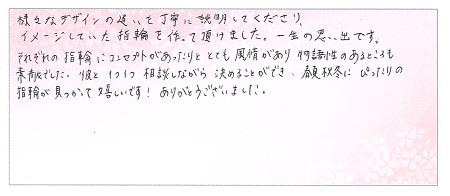 様々なデザインの違いを丁寧に説明してくださり、
イメージしていた指輪を作って頂けました。一生の思い出です。
それぞれの指輪にコンセプトがあったりととても風情があり物語性のあるところも
素敵でした。彼と1つ1つ相談しながら決めることができ、春夏秋冬にぴったりの
指輪が見つかって嬉しいです!ありがとうございました。